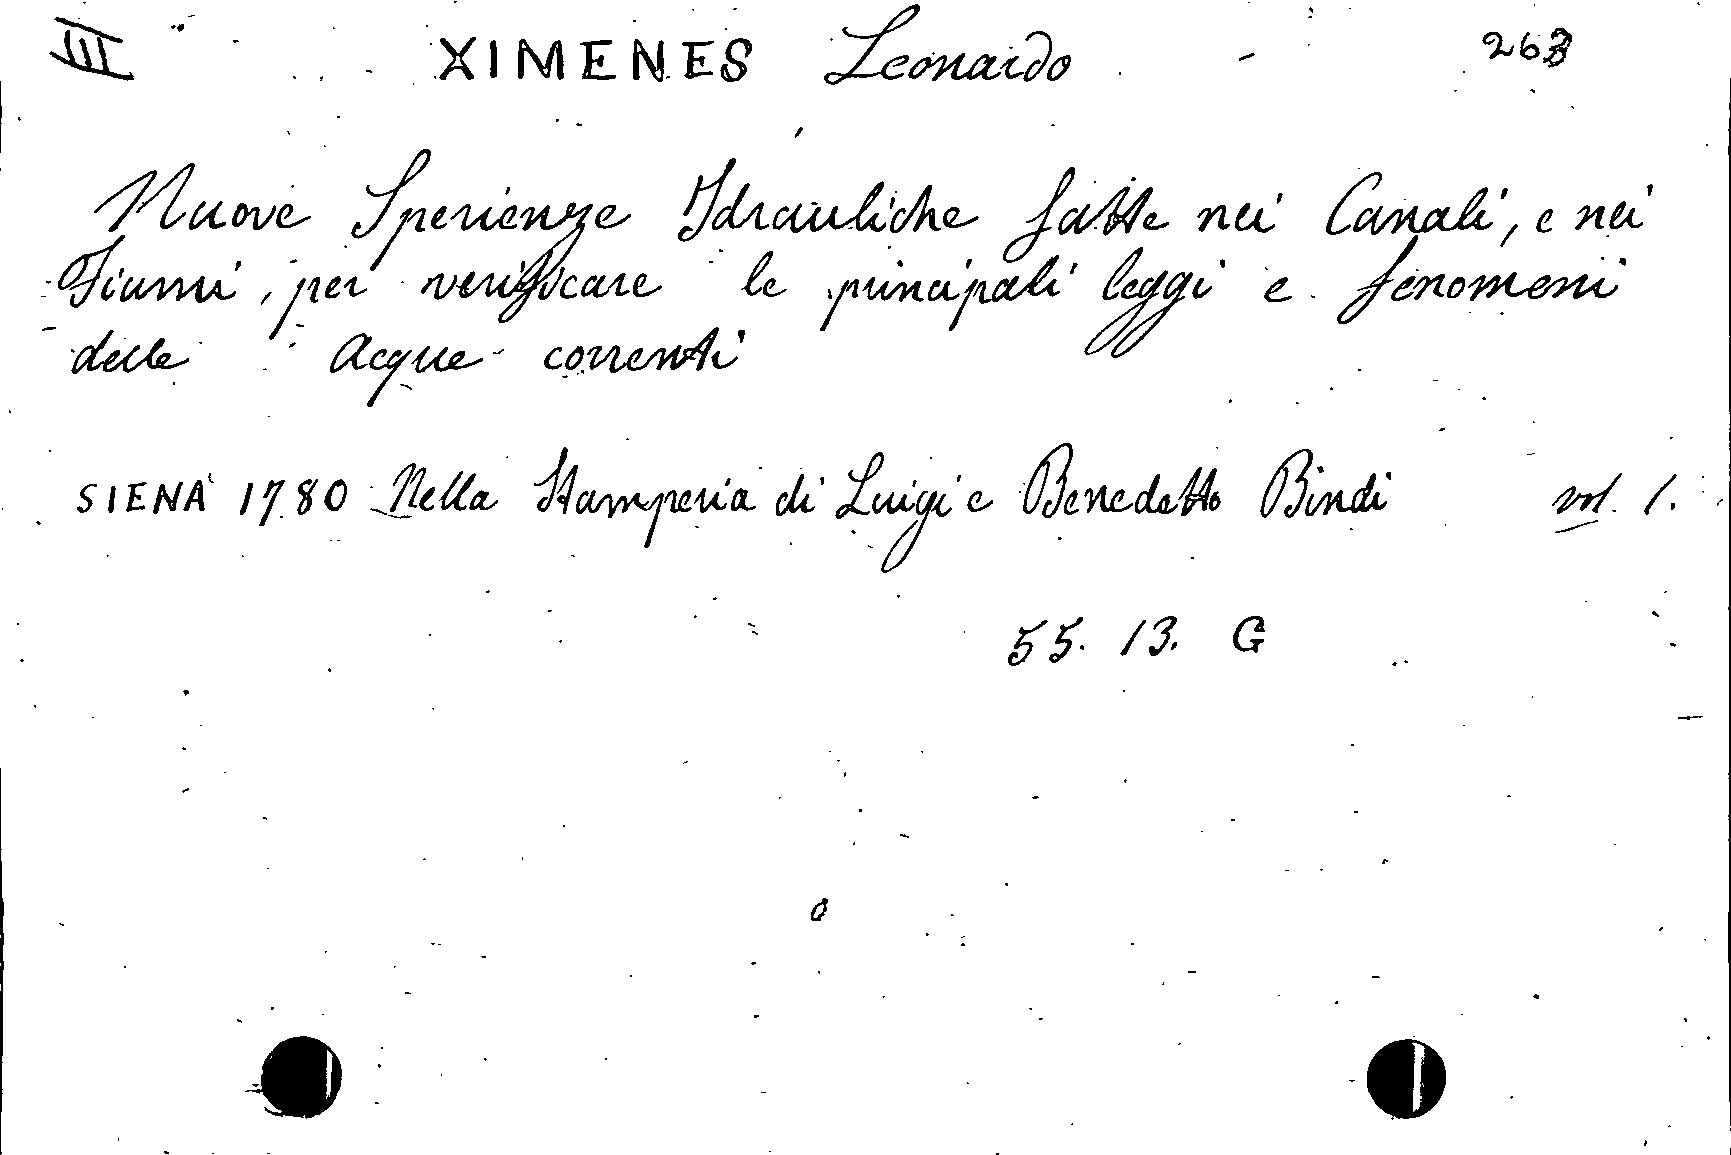 III XIMENES Leonardo - 263
Nuove Sperienze Idrauliche fatte nei Canali, e nei
Fiumi, per verificare le principali leggi e fenomeni
delle Acque correnti
SIENA 1780 Nella Stamperia di Luigi e Benedetto Bindi vol. 1.
55. 13. G